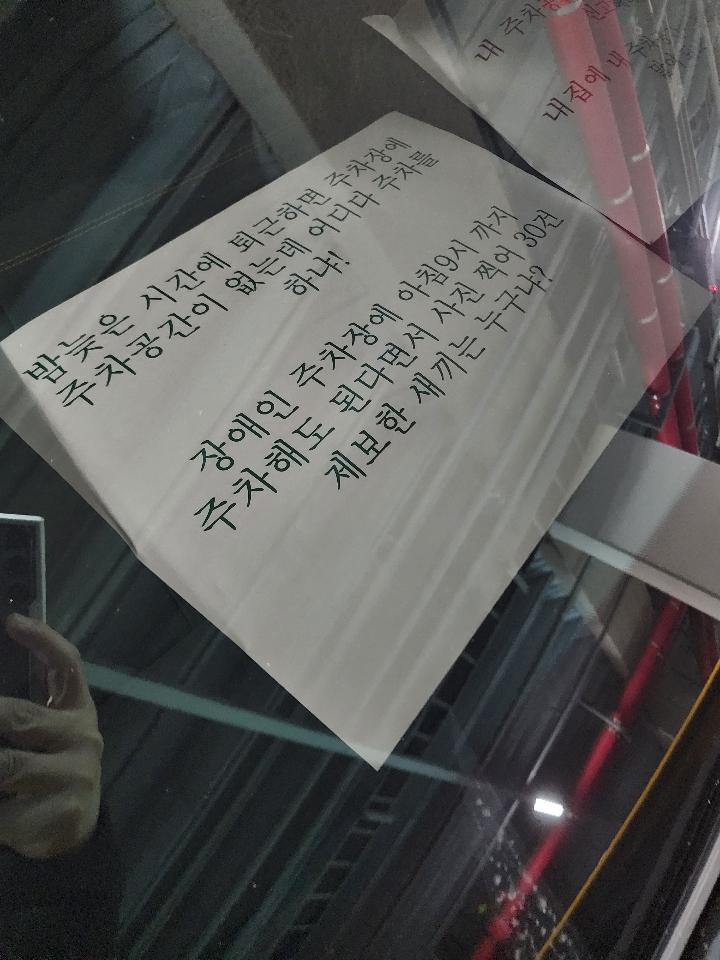 밤늦은 시간에 퇴근하면 주차장에
주차공간이 없는데 어디다 주차를
하냐!
장애인 주차장에 아침9시 까지
주차해도 된다면서 사진 찍어 30건
제보한 새끼는 누구냐?
내 주차공
내집에 내